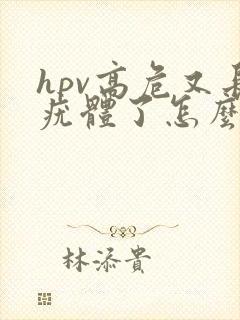 hpv高危又長
疣體了怎麼
林添貴